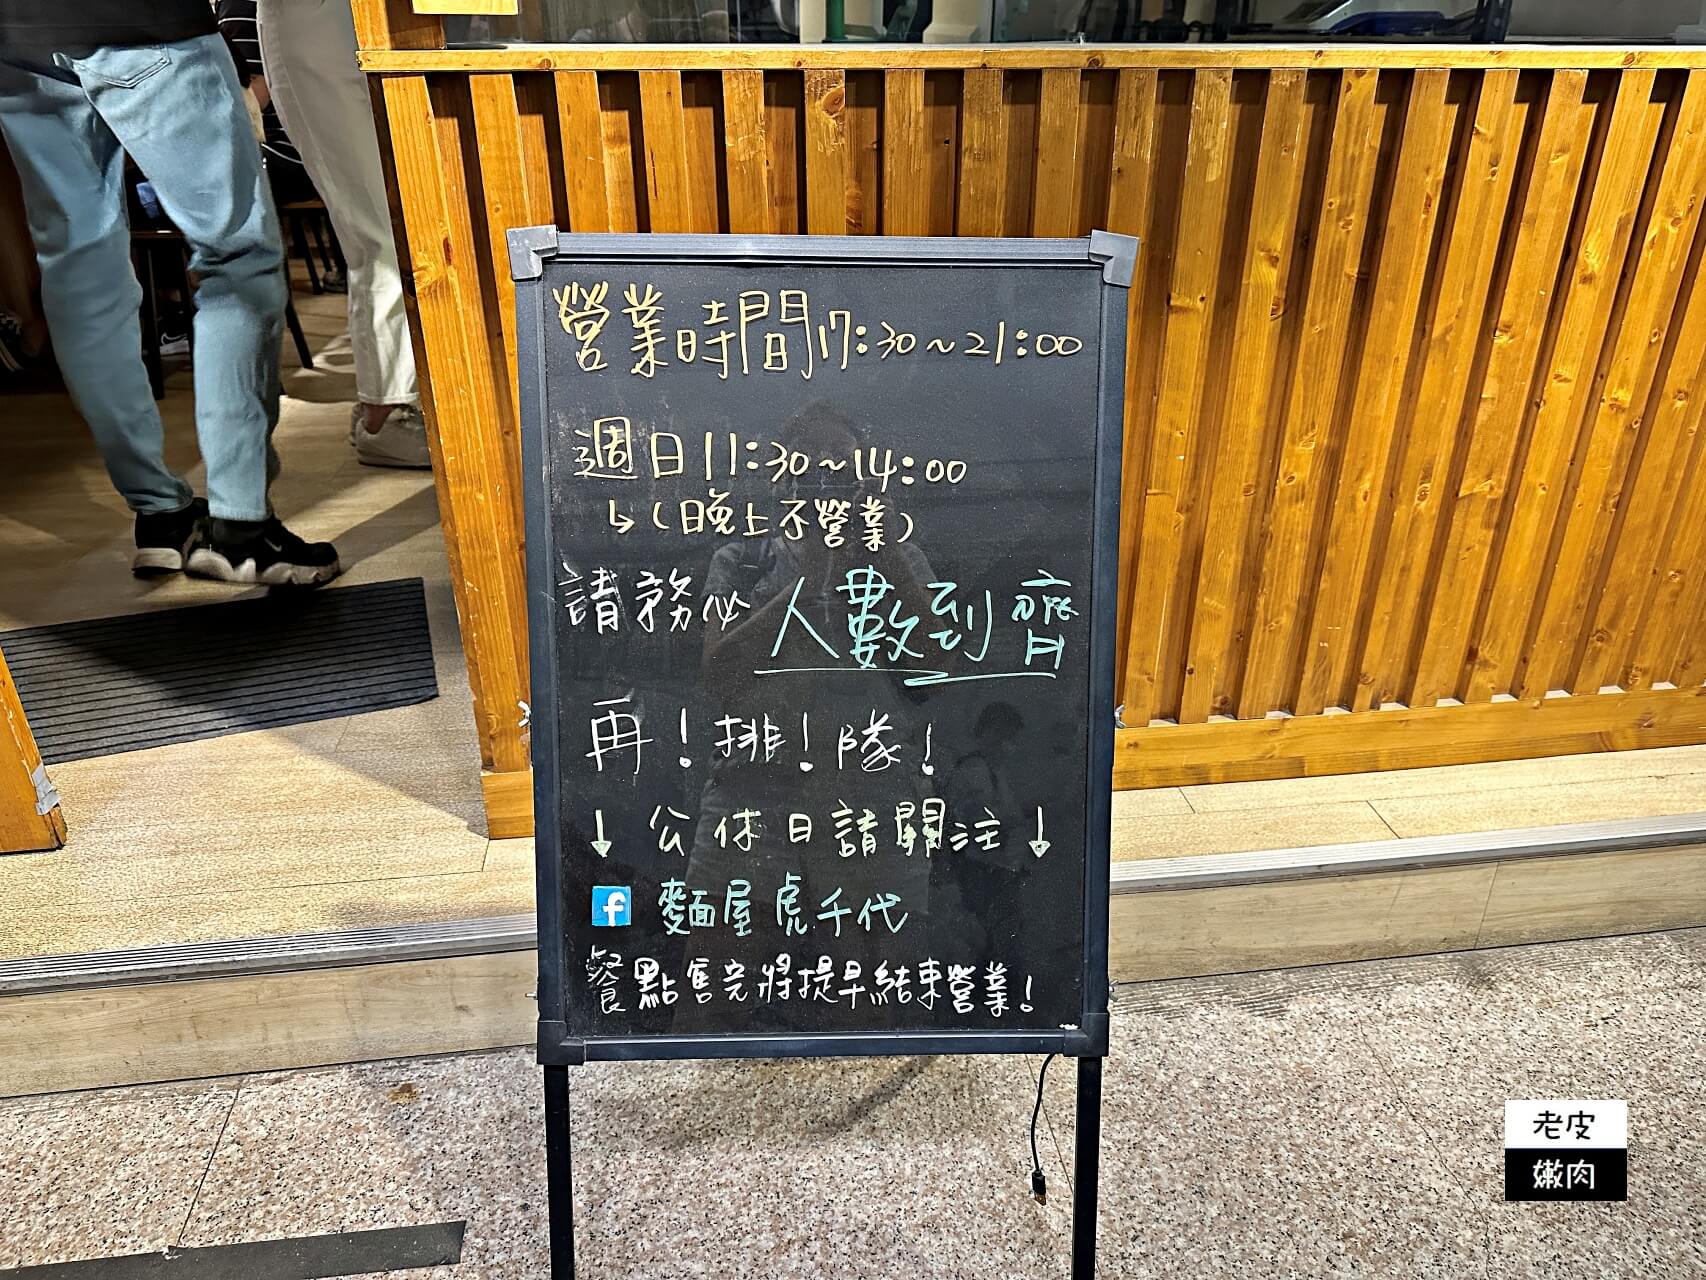 營業時間17:30~21:00
週日11:30~14:00
↳(晚上不營業)
請務必 人數到齊
再!排!隊!
↓ 公休日請關注 ↓
f 麵屋虎千代
餐點售完將提早結束營業!
老皮
嫩肉